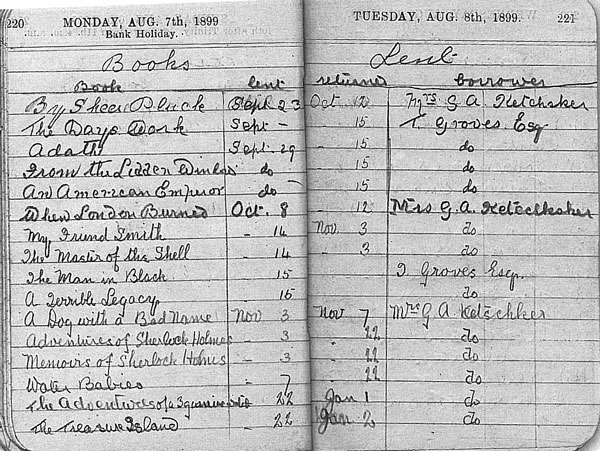 220 MONDAY, AUG. 7th, 1899
Bank Holiday.
TUESDAY, AUG. 8th, 1899. 221
Books Lent
Book lent returned borrower
By Sheer Pluck Sept 23 Oct. 12 Mrs G A Ketchker
The Days Work Sept - - 15 T. Groves. Esq
Adath Sept. 29 - 15 do
From the do - 15 do
An American Emperor do - 15 do
When London Burned Oct. 8 12 Mrs G.A.
My Friend Smith - 14 Nov. 3 do
The Master of the Shell - 14 - 3 do
The Man in Black 15 T Groves Esq.
A Terrible Legacy - 15 do
A Dog with a Bad Name Nov 3 Nov 7 Mrs G A Ketschker
Adventures of Sherlock Holmes - 3 " 22 do
Memoirs of Sherlock Holmes - 3 " 22 do
Water Babies - 7 22 do
The Adventures of a 22 Jan 1 do
The Treasure Island - 22 Jan 2 do